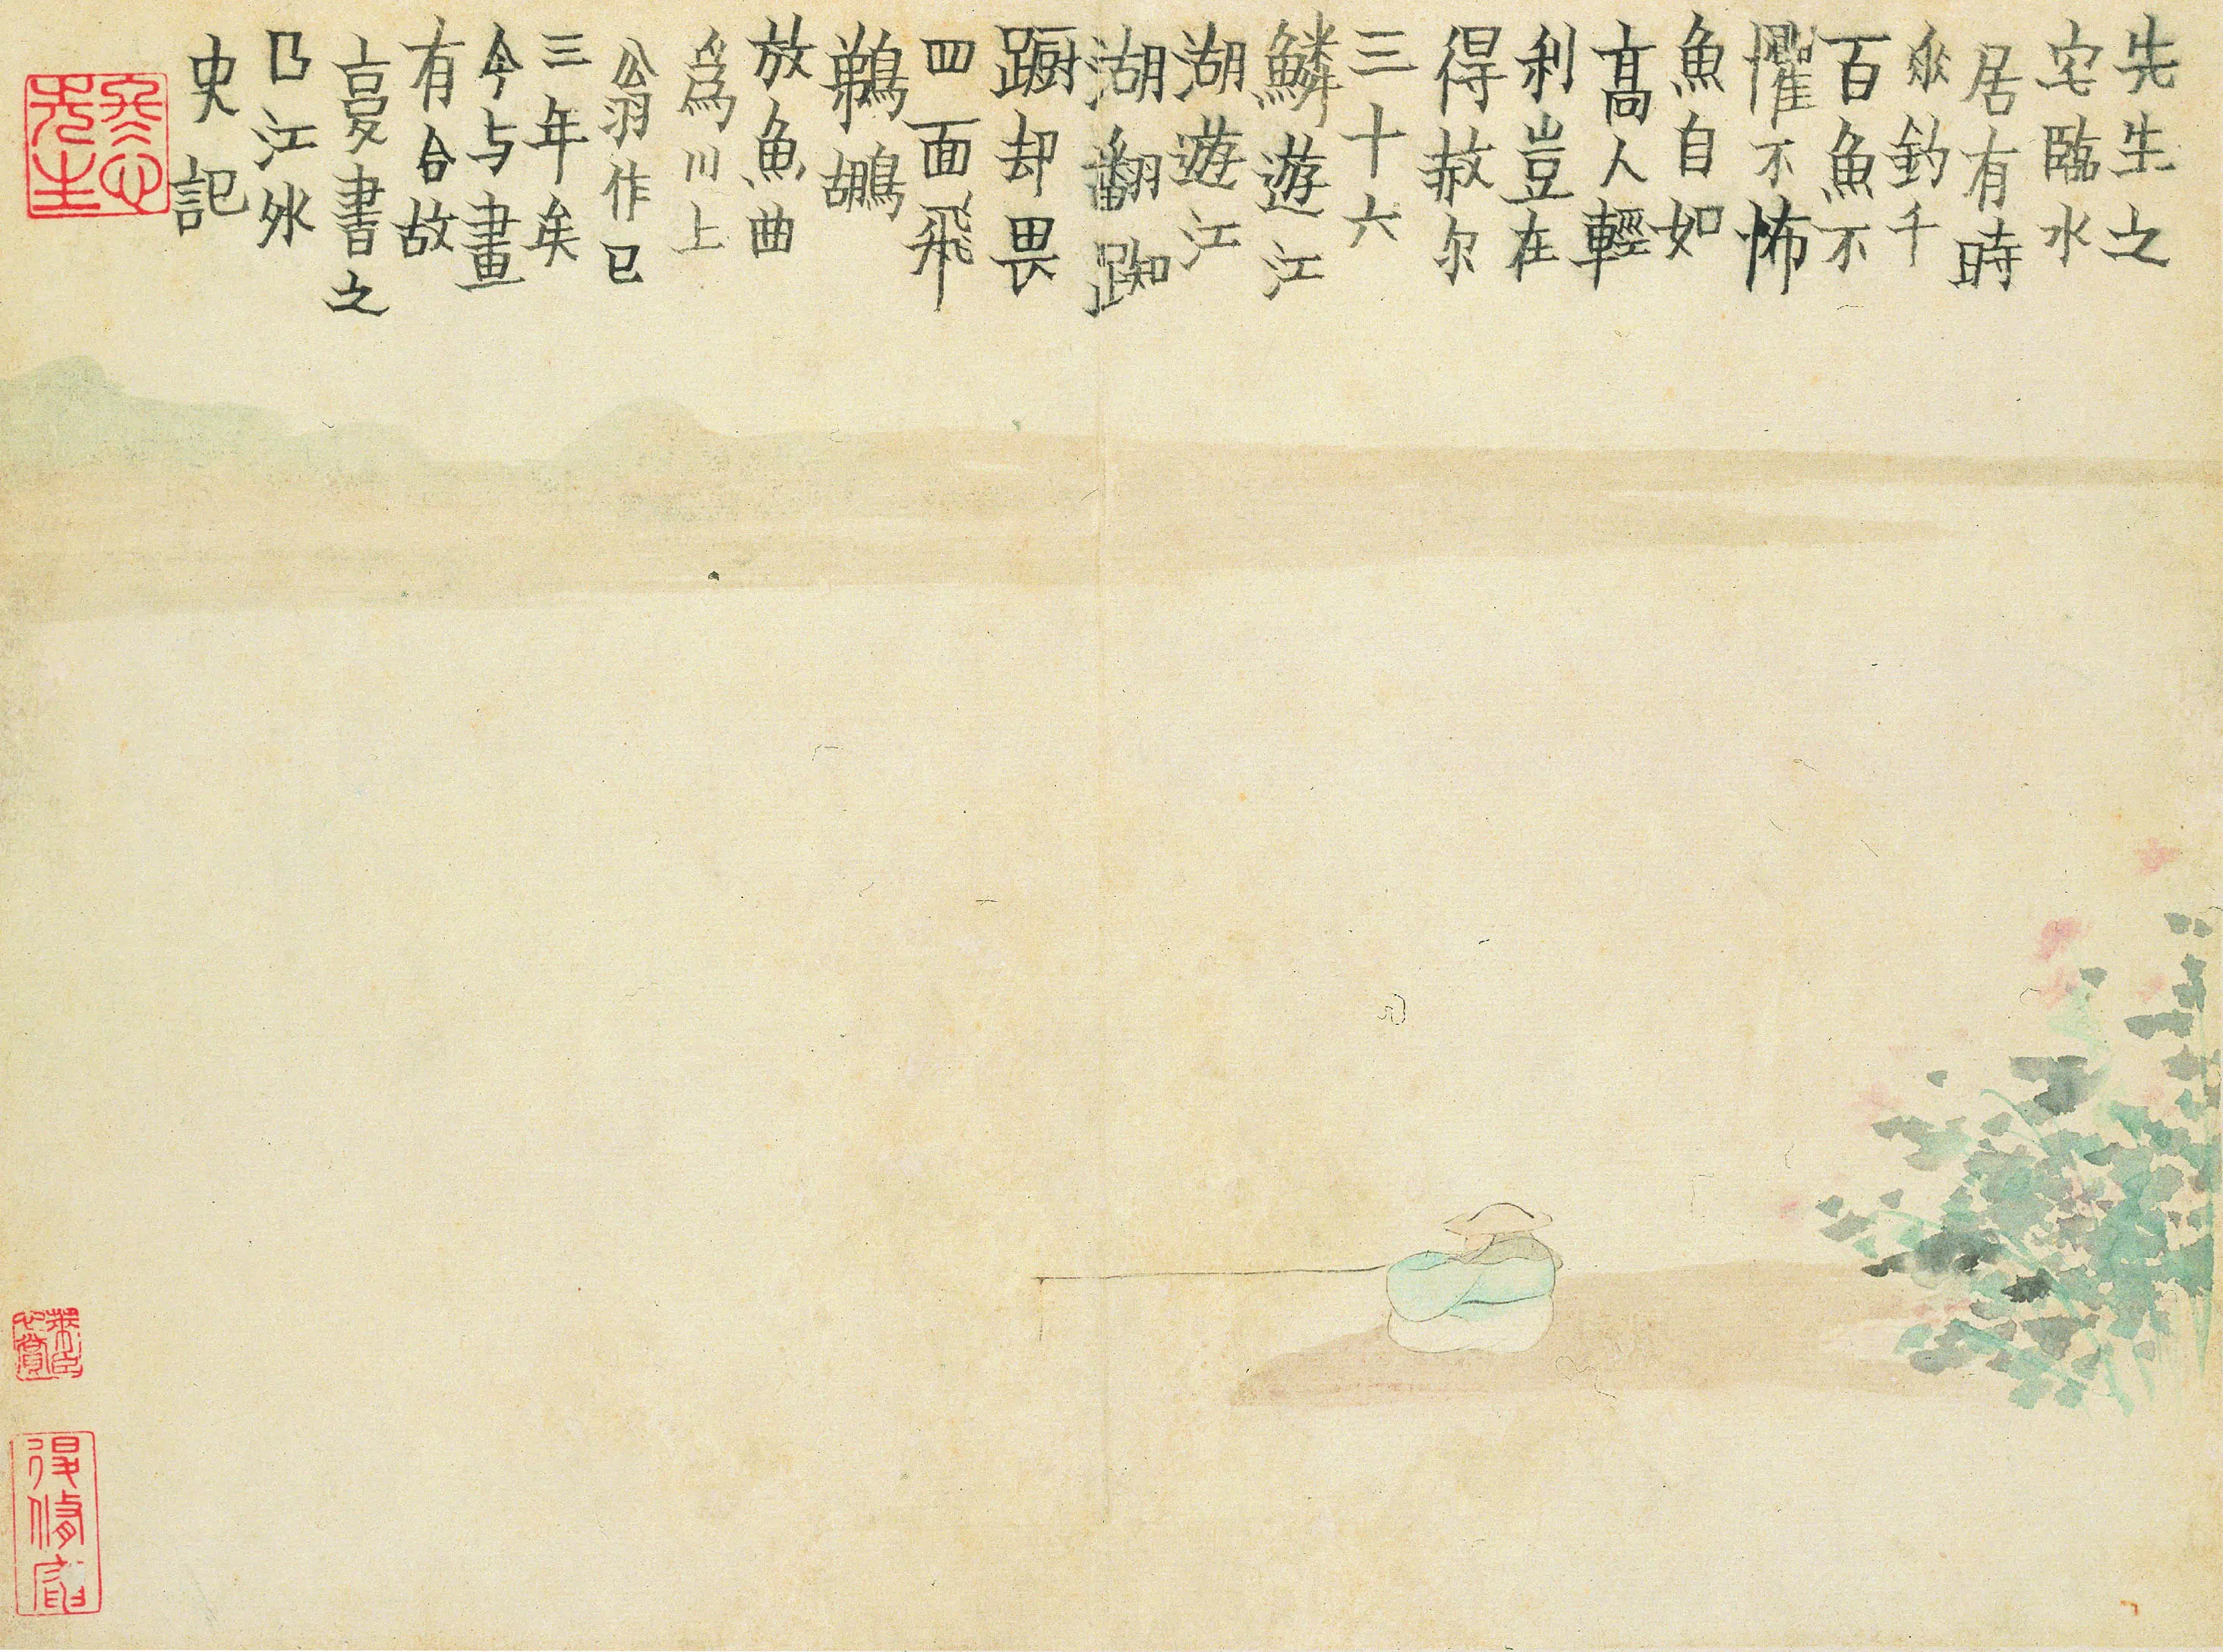 先生之
宅臨水
居有時
垂釣千
百魚不
懼不怖
魚自如
高人輕
利豈在
得赦尔
三十六
鱗遊江
湖遊江
湖翻踟
蹰却畏
四面飛
鵜鶘
放魚曲
為川上
公翁作已
三年矣
今与畫
有合故
亯書之
乃江外
史記
冬心
先生